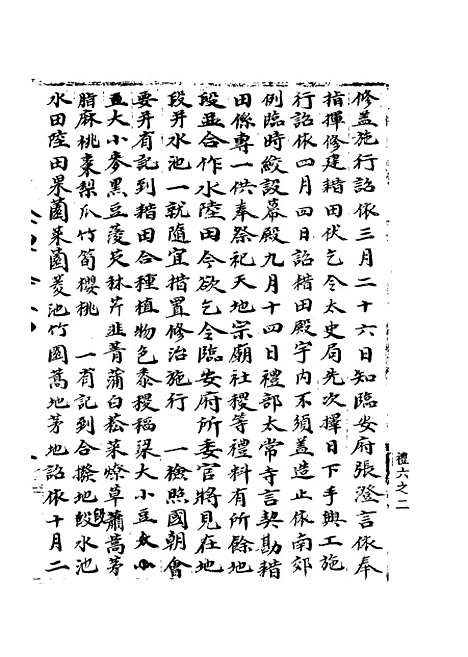 修蓋施行詔依三月二十六日知臨安府張澄言依奉
指揮修建耤田伏乞令太史局先次擇日下手興工施
行詔依四月四日詔耤田殿宇內不須蓋造止依南郊
例臨時絞設幕殿九月十四日禮部太常寺言契勘耤
田係專一供奉祭祀天地宗廟社稷等禮料有所餘地
段並合作水陸田今欲乞令臨安府所委官將見在地
段并水池一就隨宜措置修治施行 一檢照國朝會
要并有記到耤田合種植物色黍稷稻粱大小豆
大小麥黑豆菱芡秫芹韭菁蒲白菘菜燎草蕭蒿茅
脂麻桃棗梨瓜竹筍櫻桃 一有記到合撥地段水池
水田陸田果園菜園菱池竹園蒿地茅地詔依十月二
禮六之二